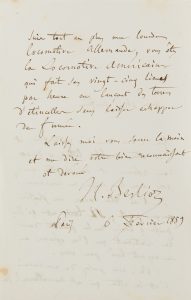 suis tout au plus une lourde
locomotive allemande, vous êtes
la Locomotive Américaine
qui fait ses vingt-cinq lieues
par heure en lançant des torrens
d'étincelles sans laisser échapper
de fumée.
Laissez moi vous serrer la main
et me dire votre bien reconnaissant
et dévoué
H. Berlioz
6 Février 1859